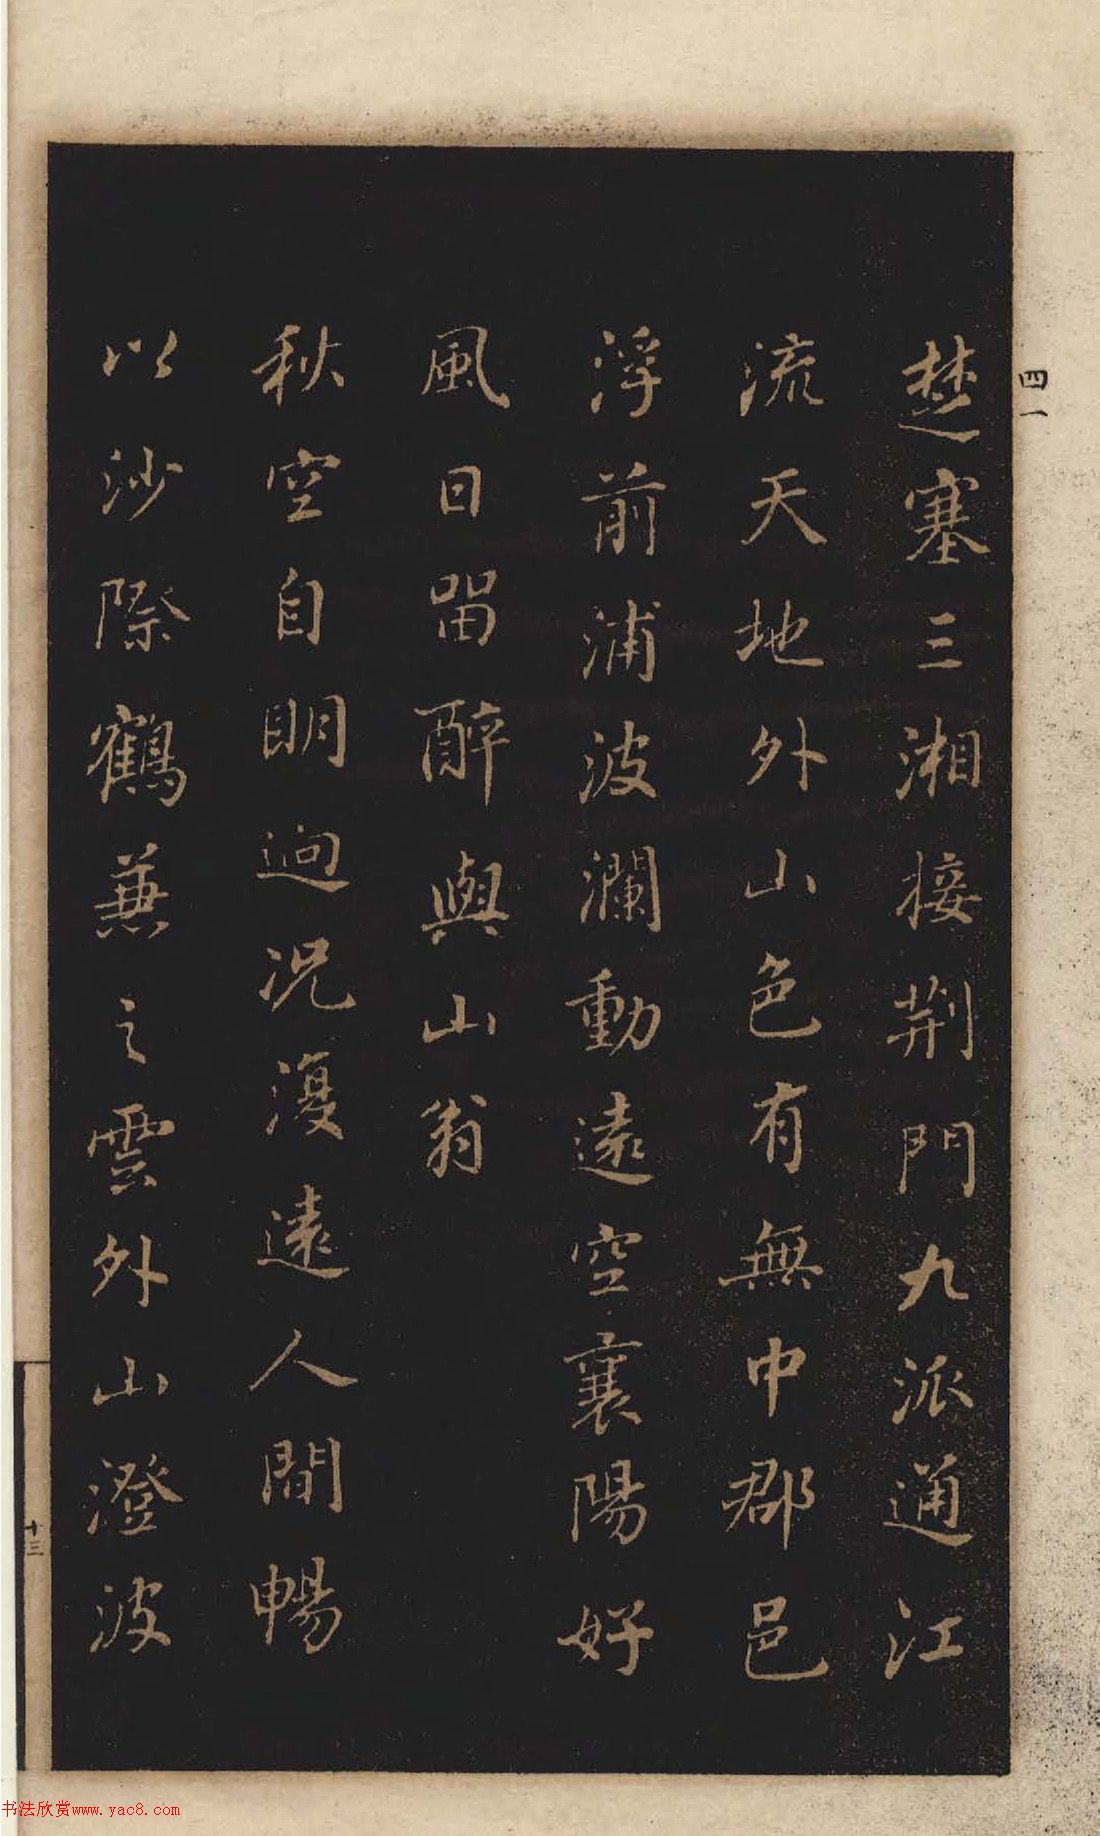 四一
楚塞三湘接荆門九派通江
流天地外山色有無中郡邑
浮前浦波瀾動遠空襄陽好
風日畱醉與山翁
秋空自明迥況復遠人間暢
以沙際鶴兼之雲外山澄波
十三
书法欣赏www.yac8.com